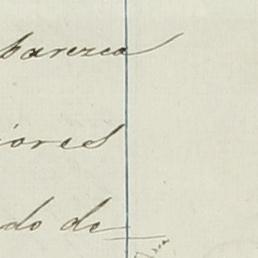 parezca
iores
do de